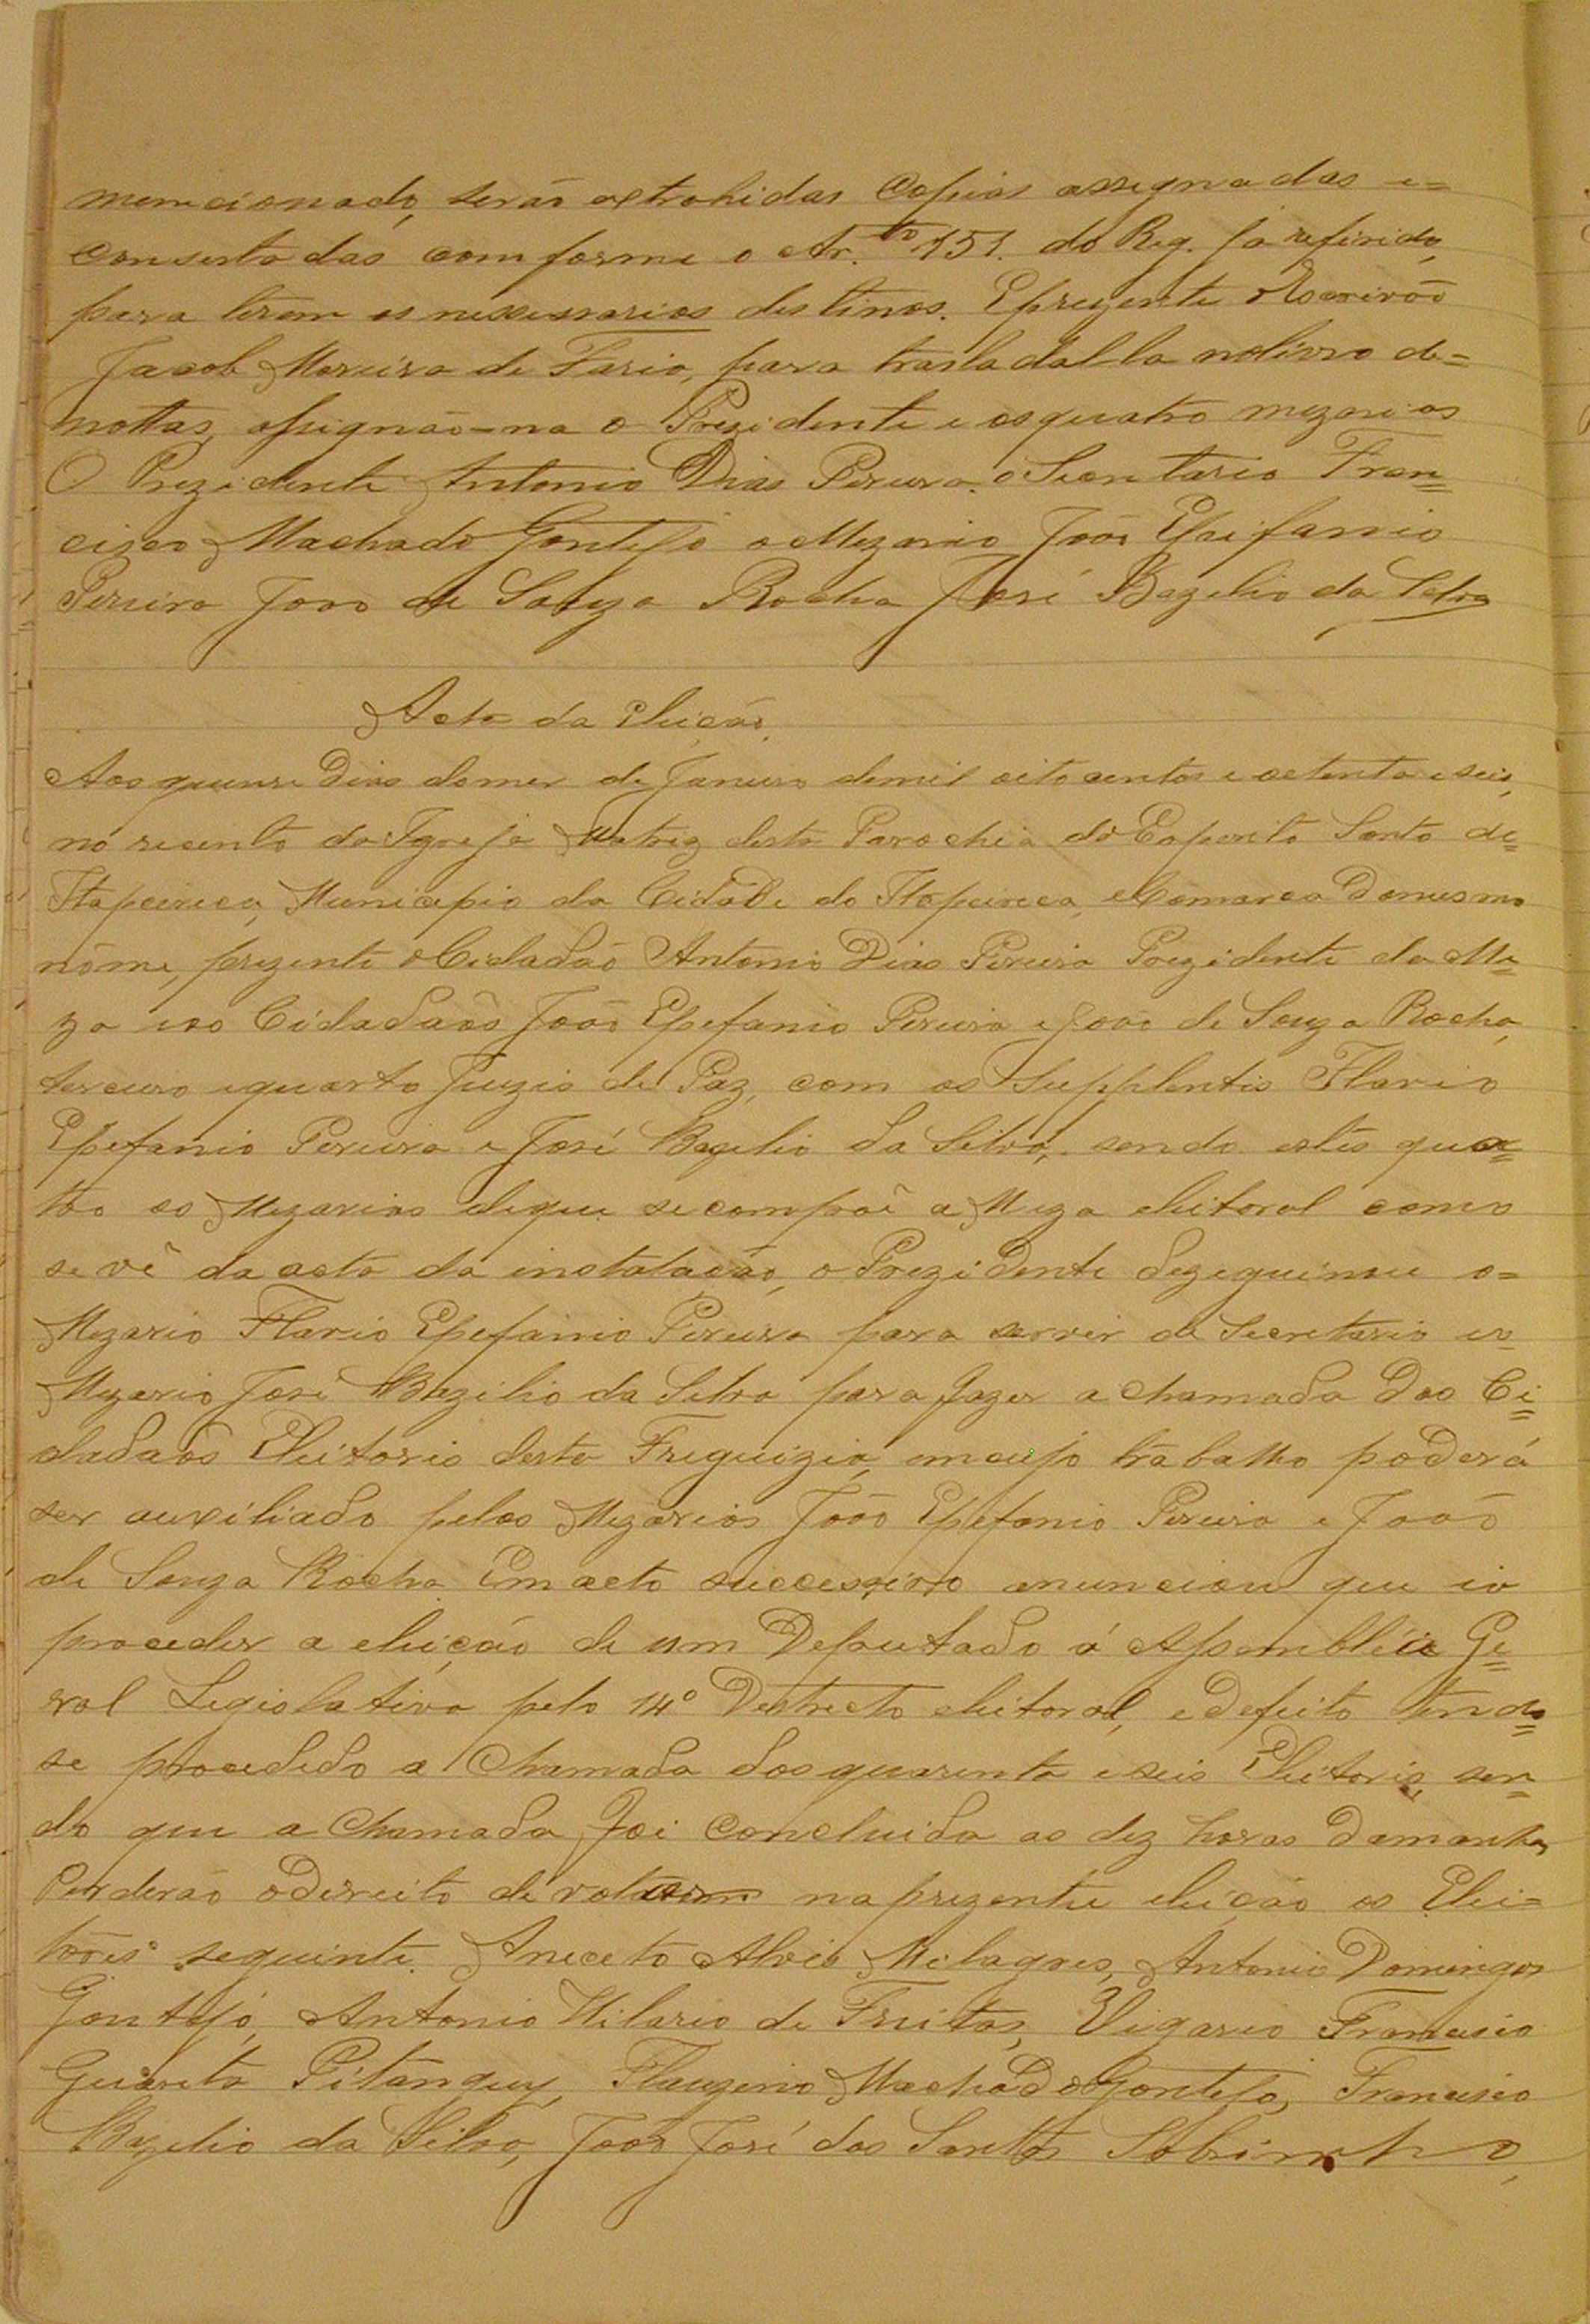 mencionado, serão extrahidas Copias assignadas e=
consertadas comforme o Ar.to 151. do Reg. ja referido,
para terem os nessessarios destinos. E prezente o Escrivão
Jacob Moreira de Faria, para trasladalla no livro de=
nottas, assignão-na o Prezidente e os quatro mezarios
O Prezidente Antonio Dias Pereira. o Secretario Fran=
cisco Machado Gontijo o Mezario João Epifanio
Pereira João de Souza Rocha José Bazelio da Silva
Acta da Eleição.
Aos quinse Dias do mez de Janeiro de mil oito centos e oetenta e seis,
no recinto da Igreja Matriz desta Parochia do Esperito Santo de=
Itapecirica, Municipio da Cidade do Itapecirica, e Comarca Do mesmo
nome, prezente o Cidadão Antonio Dias Pereira Prezidente da Me=
za e os Cidadaõs João Epefanio Pereira e João de Souza Rocha,
terceiro e quarto Juizis de Paz, com os Supplentis Flavio
Epefanio Pereira e José Bazelio da Silva, sendo estes qua=
tro os Mezarios de que se compoê a Meza eleitoral como
se vê da acta da instalação, o Prezidente dezeguinou o=
Mezario Flavio Epefanio Pereira para servir de Secretario e o
Mezario José Bazilio da Silva para fazer a chamada Dos Ci=
dadaõs Eleitoris desta Freguizia, em cujo trabalho poderá
ser auxiliado pelos Mezarios João Epefanio Pereira e João
de Souza Rocha. Em acto successivo anunciou que ia
proceder a eleição de um Deputado á Assembléia Ge=
ral Legislativa pelo 14º Destricto eleitoral, e De feito tendo=
se procedido a Chamada dos quarenta e seis Eleitoris, sen=
do que a chamada foi Concluida as dez horas Da manha,
Perderão o Dereito de votarem na prezente eleição os Elei=
torês seguinte. Aneceto Alves Milagres, Antonio Domingos
Gontijo, Antonio Hilario de Freitas, Vigario Francisco
Guarita Pitanguy, Flauzino Machado Gontijo, Francisco
Bazelio da Silva, João José dos Santos Sobrinho,